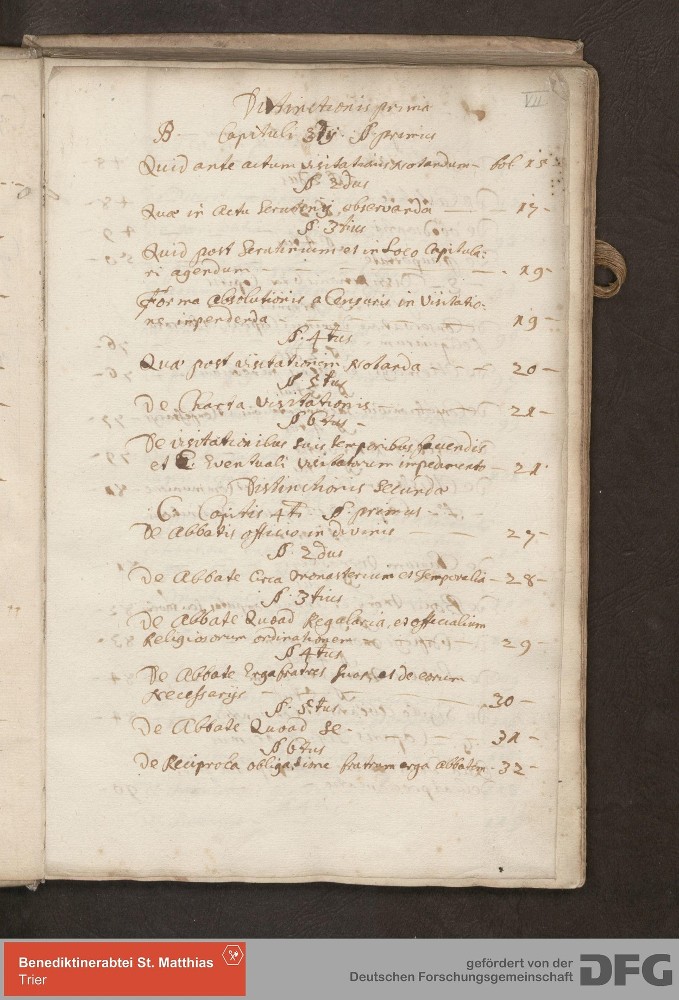 Distinctionis prima
VII
B - Capituli 3tij §. primus
Quid ante actum visitationis Notandum - fol 15
§. 2dus
Quæ in Actu Scrutinij observanda - 17 -
§. 3tius
Quid post Scrutinium et in Loco Capitula:
ri agendum - 19 -
Forma Absolutionis a Censuris in Visitatio:
ne impendenda - 19 -
§. 4tus
Quæ post visitationem Notanda - 20 -
§ 5tus
De Charta Visitationis - 21 -
§ 6tus -
De visitationibus suis temporibus
et Eventuali visitatorum impedimento - 21
Distinctionis Secunda
C. Capitis 4ti § primus -
De Abbatis officio in divinis - 27 -
§. 2dus
De Abbate Circa Monasterium et Temporalia - 28 -
§. 3tius
De Abbate Quoad Regularia, et officialium
Religiosorum ordinationem - 29 -
§ 4tus
De Abbate Erga fratres suos, et de eorum
Necessarijs - 30 -
§. 5tus
De Abbate Quoad se - 31 -
§ 6tus
De Reciproca obligatione fratrum erga Abbatem - 32 -
Benediktinerabtei St. Matthias
Trier
gefördert von der
Deutschen Forschungsgemeinschaft
DFG